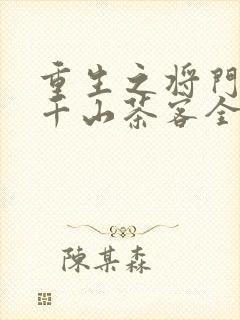 重生之将门
千山茶客全
陈某森